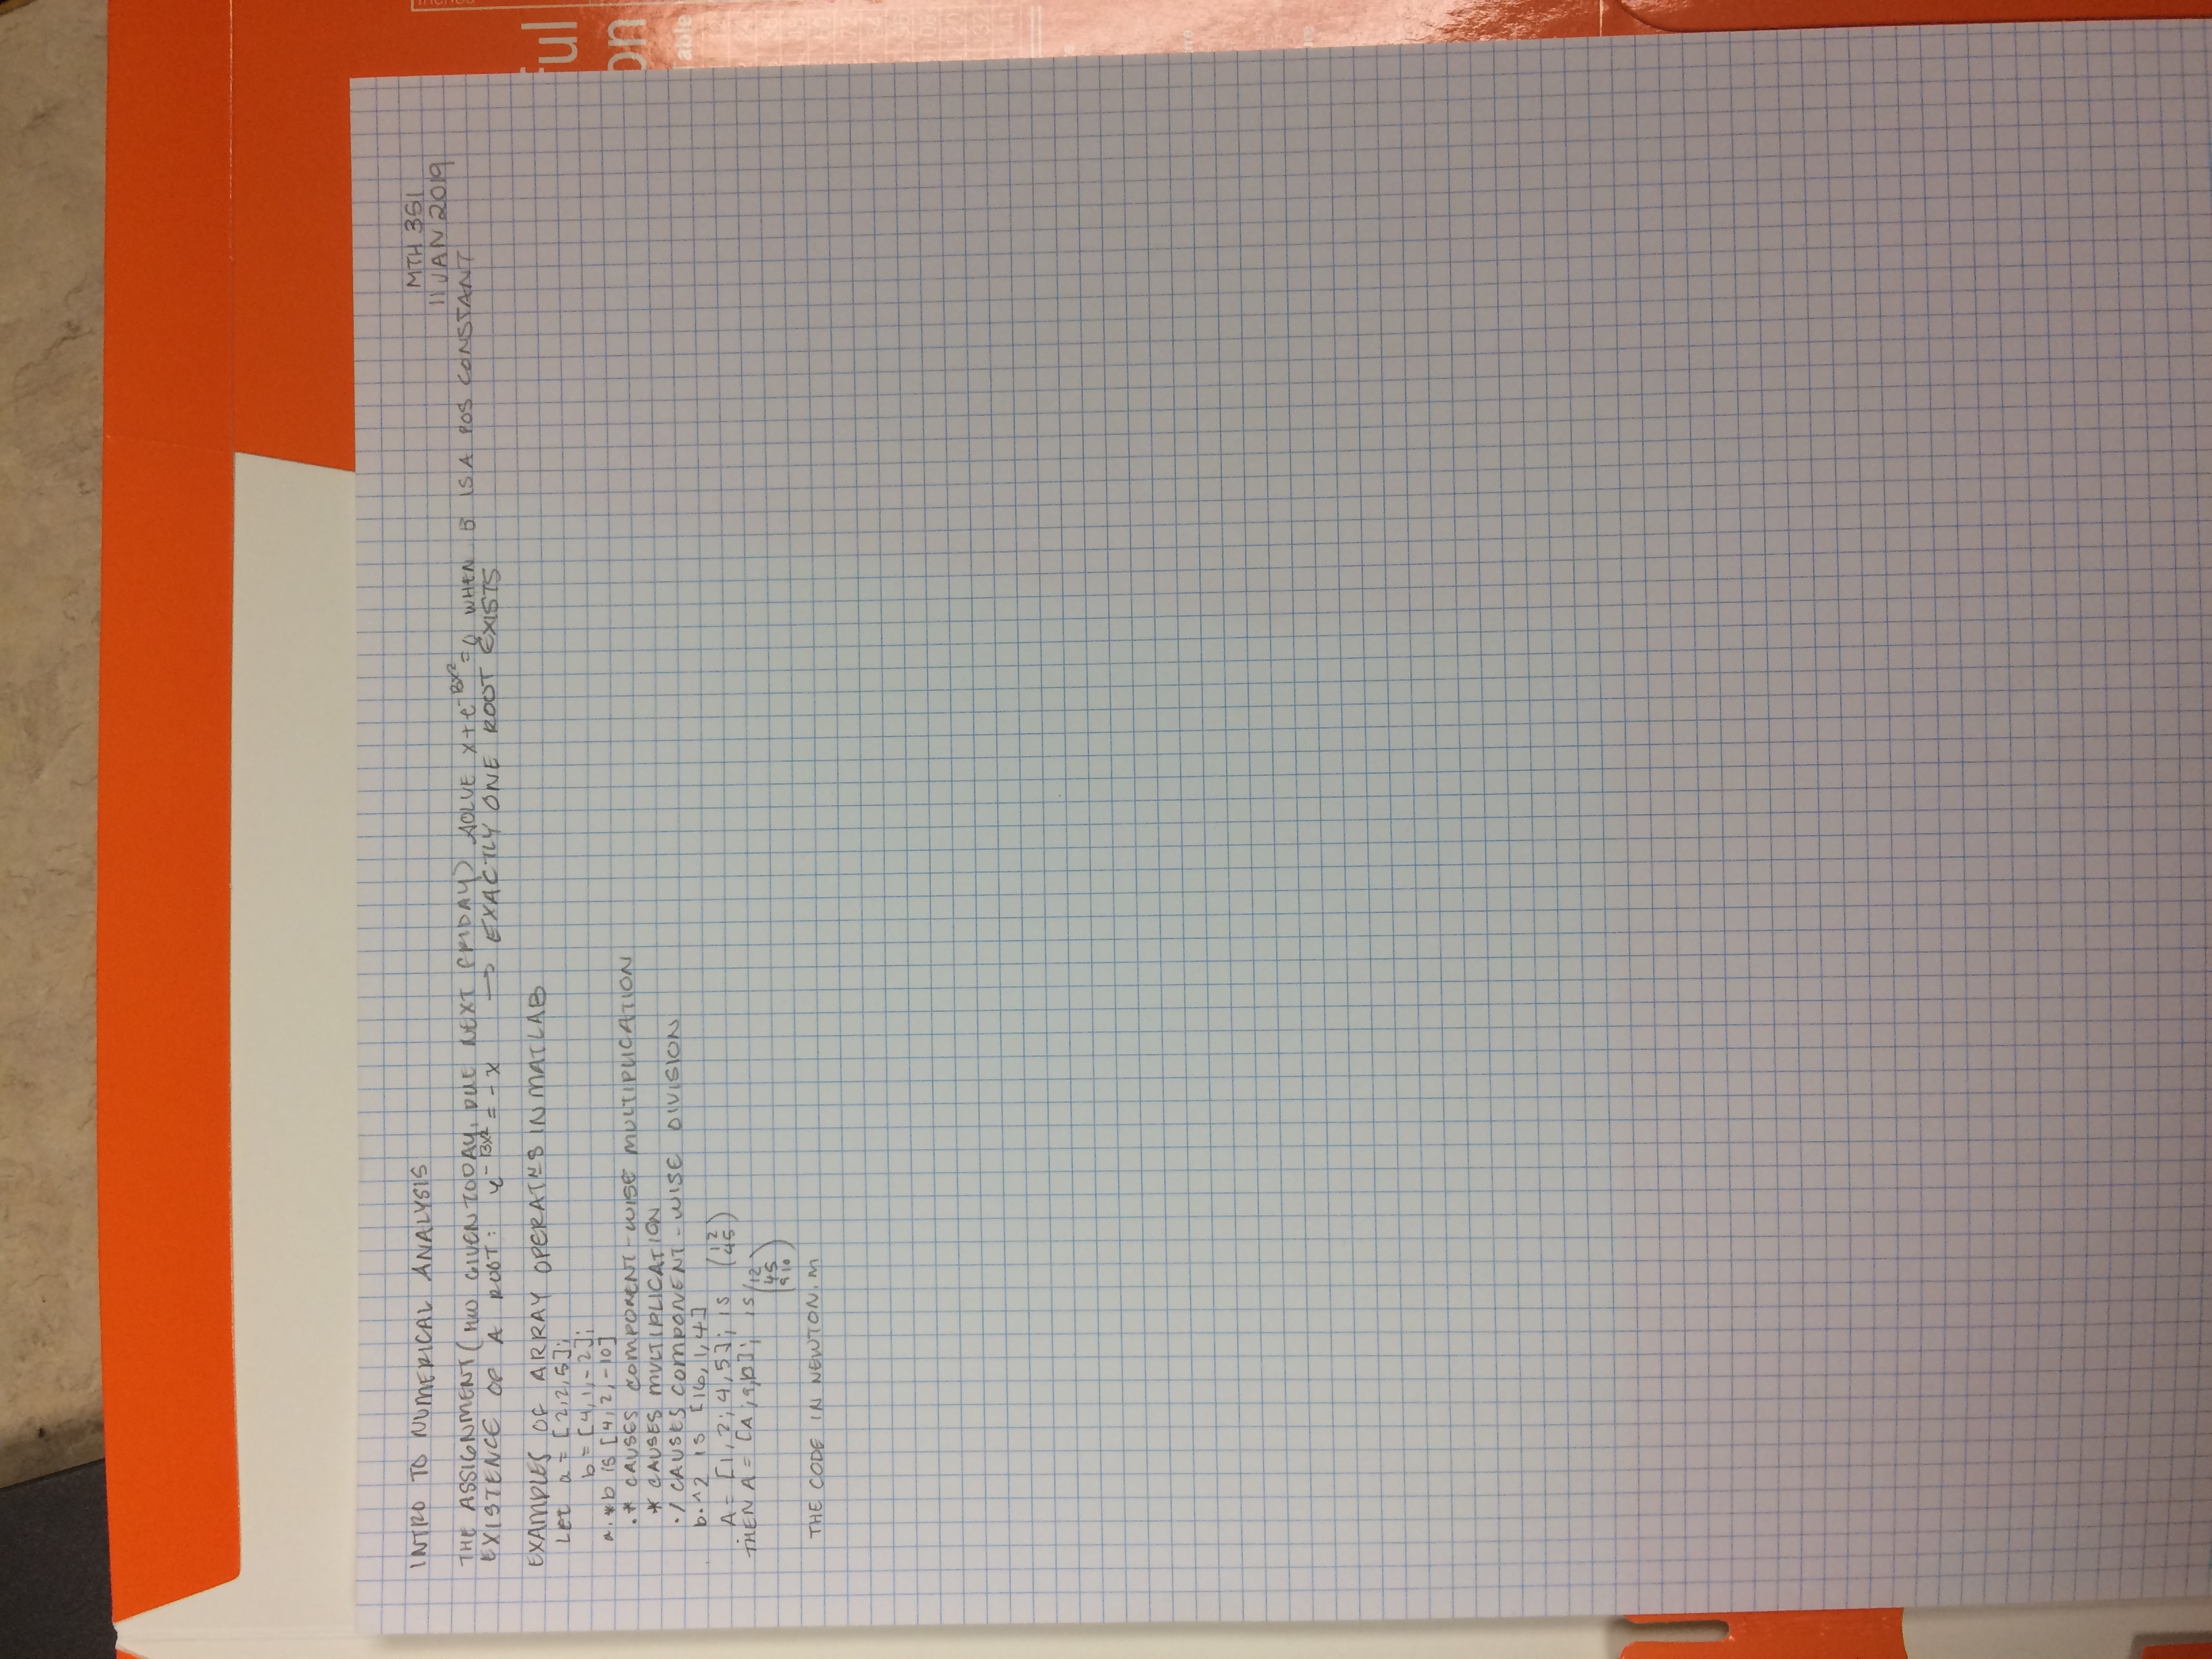 INTRO TO NUMERICAL ANALYSIS
MTH 351
11 JAN 2019
THE ASSIGNMENT (HW GIVEN TODAY, DUE NEXT FRIDAY) SOLVE x+e^-Bx²=0 WHEN B IS A POS CONSTANT
EXISTENCE OF A ROOT: e^-Bx² = -x → EXACTLY ONE ROOT EXISTS
EXAMPLES OF ARRAY IN MATLAB
Let a = [2,2,5];
b = [4,1,-2];
a.*b is [4,2,-10]
.* CAUSES COMPONENT-WISE MULTIPLICATION
* CAUSES MULTIPLICATION
./ CAUSES COMPONENT-WISE DIVISION
b.^2 is [16,1,4]
A = [1,2;4,5]; is (1 2
4 5)
THEN A = [A;9,10]; is (1 2
4 5
9 10)
THE CODE IN NEWTON.m
ful
on
Table